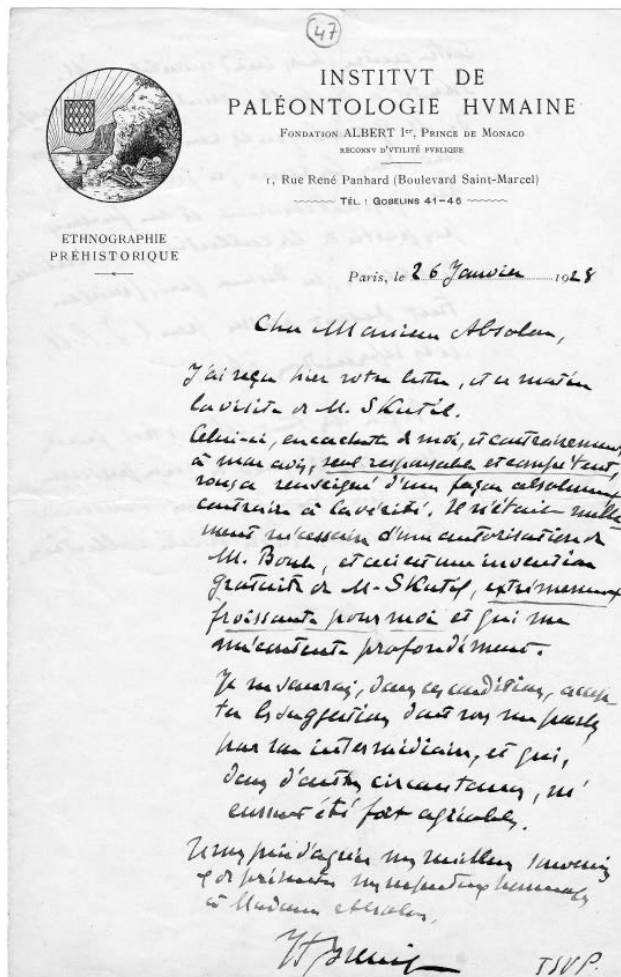 47
INSTITVT DE
PALÉONTOLOGIE HVMAINE
FONDATION ALBERT Ier, PRINCE DE MONACO
RECONNV D'VTILITÉ PVBLIQUE
1, Rue René Panhard (Boulevard Saint-Marcel)
TÉL. : GOBELINS 41-46
ETHNOGRAPHIE
PRÉHISTORIQUE
Paris, le 26 Janvier 1928
Cher Monsieur Absolon,
J'ai reçu hier votre lettre, et ce matin
la visite de M. Skutil.
Celui-ci, en cachette de moi, et contrairement
à mon avis, seul responsable et compétent,
vous a renseigné d'une façon absolument
contraire à la vérité. Il n'était nulle-
ment nécessaire d'une autorisation de
M. Boule, et ceci est une invention
gratuite de M. Skutil, extrêmement
froissante pour moi et qui me
mécontente profondément.
Je ne saurai, dans ces conditions, accep-
ter les suggestions dont vous me parlez
par son intermédiaire, et qui,
dans d'autres circonstances, m'
eussent été fort agréables.
Je vous prie d'agréer mes meilleurs souvenirs
et de présenter mes respectueux hommages
à Madame Absolon.
H Breuil
TSVP.